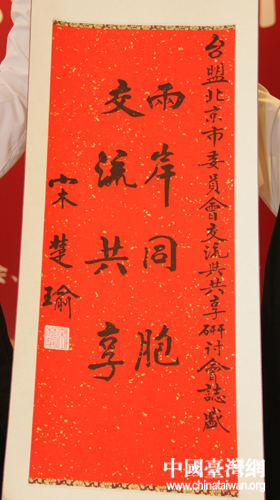 台盟北京市委員會交流與共享研討會誌盛
兩岸同胞
交流共享
宋楚瑜
中國臺灣網
www.chinataiwan.org